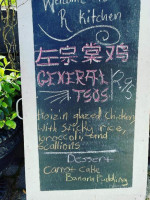 Welcome to
R Kitchen
左宗棠鸡
GENERAL
TSOS
Hoizin glazed Chicken
With Sticky rice,
broccoli, and
Scallions
Dessert
Carrot Cake
Banana Pudding